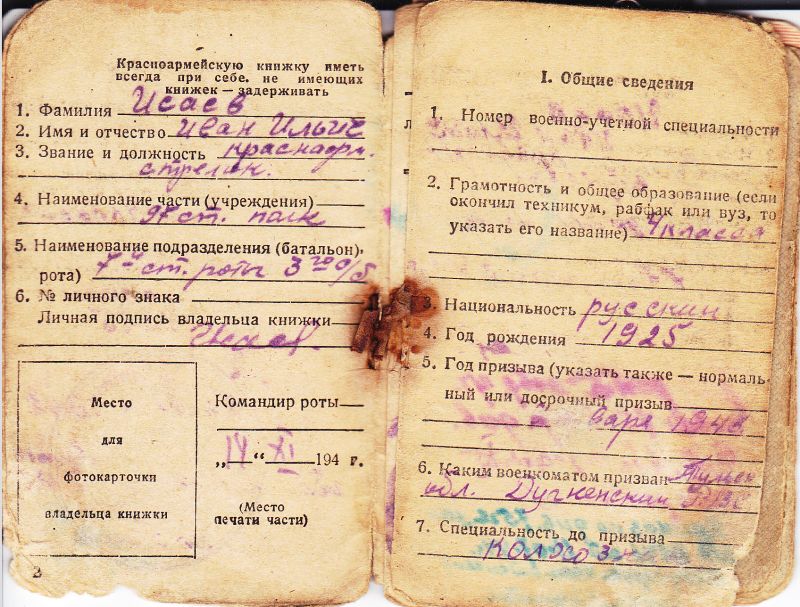 Красноармейскую книжку иметь
всегда при себе. не имеющих
книжек — задерживать
1. Фамилия Исаев
2. Имя и отчество Иван Ильич
3. Звание и должность красноарм.
стрелок.
4. Наименование части (учреждения)
97 ст. полк
5. Наименование подразделения (батальон,
рота) 7й ст. роты 3го с/б
6. № личного знака
Личная подпись владельца книжки
Исаев
Место
для
фотокарточки
владельца книжки
Командир роты
„14“ XI 194 г.
(Место
печати части)
2
I. Общие сведения
1. Номер военно-учетной специальности
2. Грамотность и общее образование (если
окончил техникум, рабфак или вуз, то
указать его название) 4 класса
3. Национальность русский
4. Год рождения 1925
5. Год призыва (указать также — нормаль-
ный или досрочный призыв
1943
6. Каким военкоматом призван Тульск
обл. РВК
7. Специальность до призыва